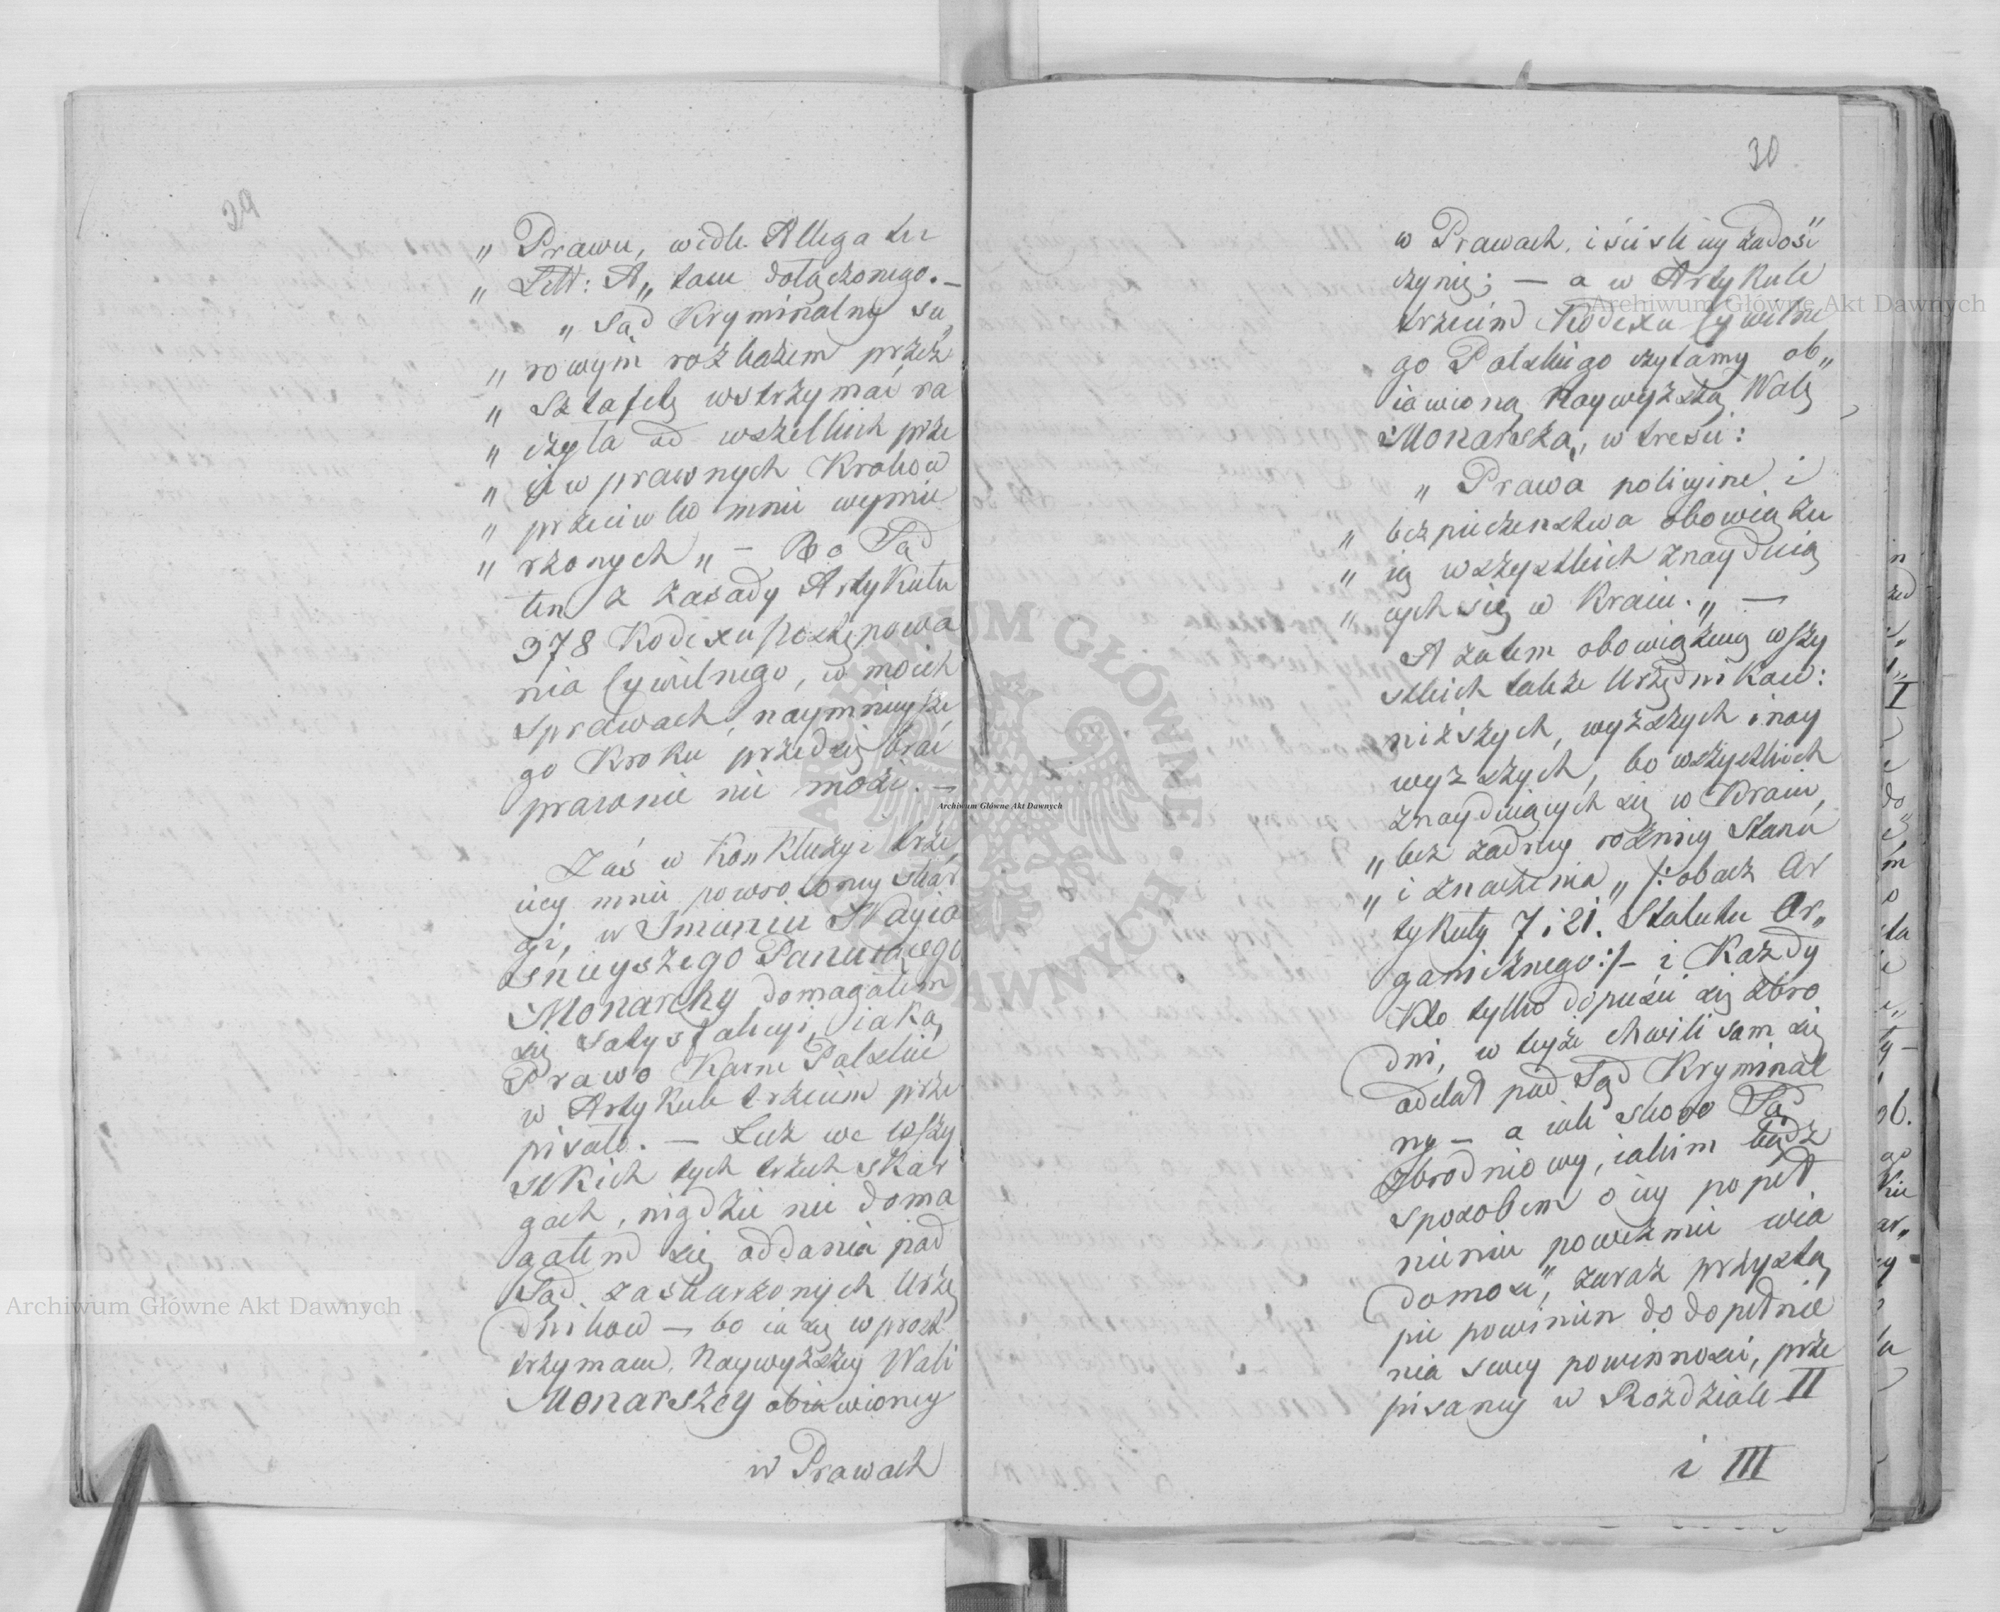 29
„ Prawu, wedle Allegatu
„ Litt: A„ tam dołączonego. —
„ Sąd Kryminalny su„
„ rowym rozkazem przez
„ Sztafetę wstrzymać ra
„ czyła od wszelkich prze
„ ciw prawnych Kroków
„ przeciwko mnie wymie
„ rzonych „ — Bo Sąd
ten z zasady Artykułu
378 Kodexu Postępowa
nia Cywilnego, w moich
sprawach, naymnieysze
go Kroku przedsię brać
prawnie nie może. —
Zaś w Konkluzyi trze
ciey mnie powroconey skar
gi, w Imieniu Nayia
śnieyszego Panuiącego
Monarchy domagałem
się satysfakcyi, iaką
Prawo Karne Polskie
w Artykule trzecim prze
pisało. — Lecz we wszy
stkich tych trzech skar
gach, nigdzie nie doma
gałem się oddania pod
Sąd zaskarżonych Urzę
dników — bo ia się wprost
trzymam Naywyższey Woli
Monarszey obiawioney
w Prawach
30
w Prawach, i ściśle iey zadość
czynię; — a w Artykule
trzecim Kodexu Cywilne
go Polskiego czytamy ob„
iawioną Naywyższą Wolę
Monarszą, w treści:
„ Prawa policyine i
„ bezpieczenstwa obowiązu
„ ią wszystkich znayduią
„ cych się w Kraiu. „ —
A zatem obowiązuią wszy
stkich także Urzędników:
niższych, wyższych i nay
wyższych, bo wszystkich
znayduiących się w Kraiu,
„ bez żadney rożnicy Stanu
„ i znaczenia „ /: obacz Ar
tykuły 7 i 21. Statutu Or„
ganicznego :/ — i Każdy
Kto tylko dopuści się zbro
dni, w teyże chwili sam się
oddał pod Sąd Kryminal
ny — a iak skoro Sąd
zbrodniowy, iakim bądź
sposobem o iey popeł
nieniu poweźmie wia
domość, zaraz przystą
pić powinien do dopełnie
nia swey powinności, prze
pisaney w Rozdziale II
i III
Archiwum Główne Akt Dawnych
Archiwum Główne Akt Dawnych
Archiwum Główne Akt Dawnych
ARCHIWUM GŁÓWNE AKT DAWNYCH